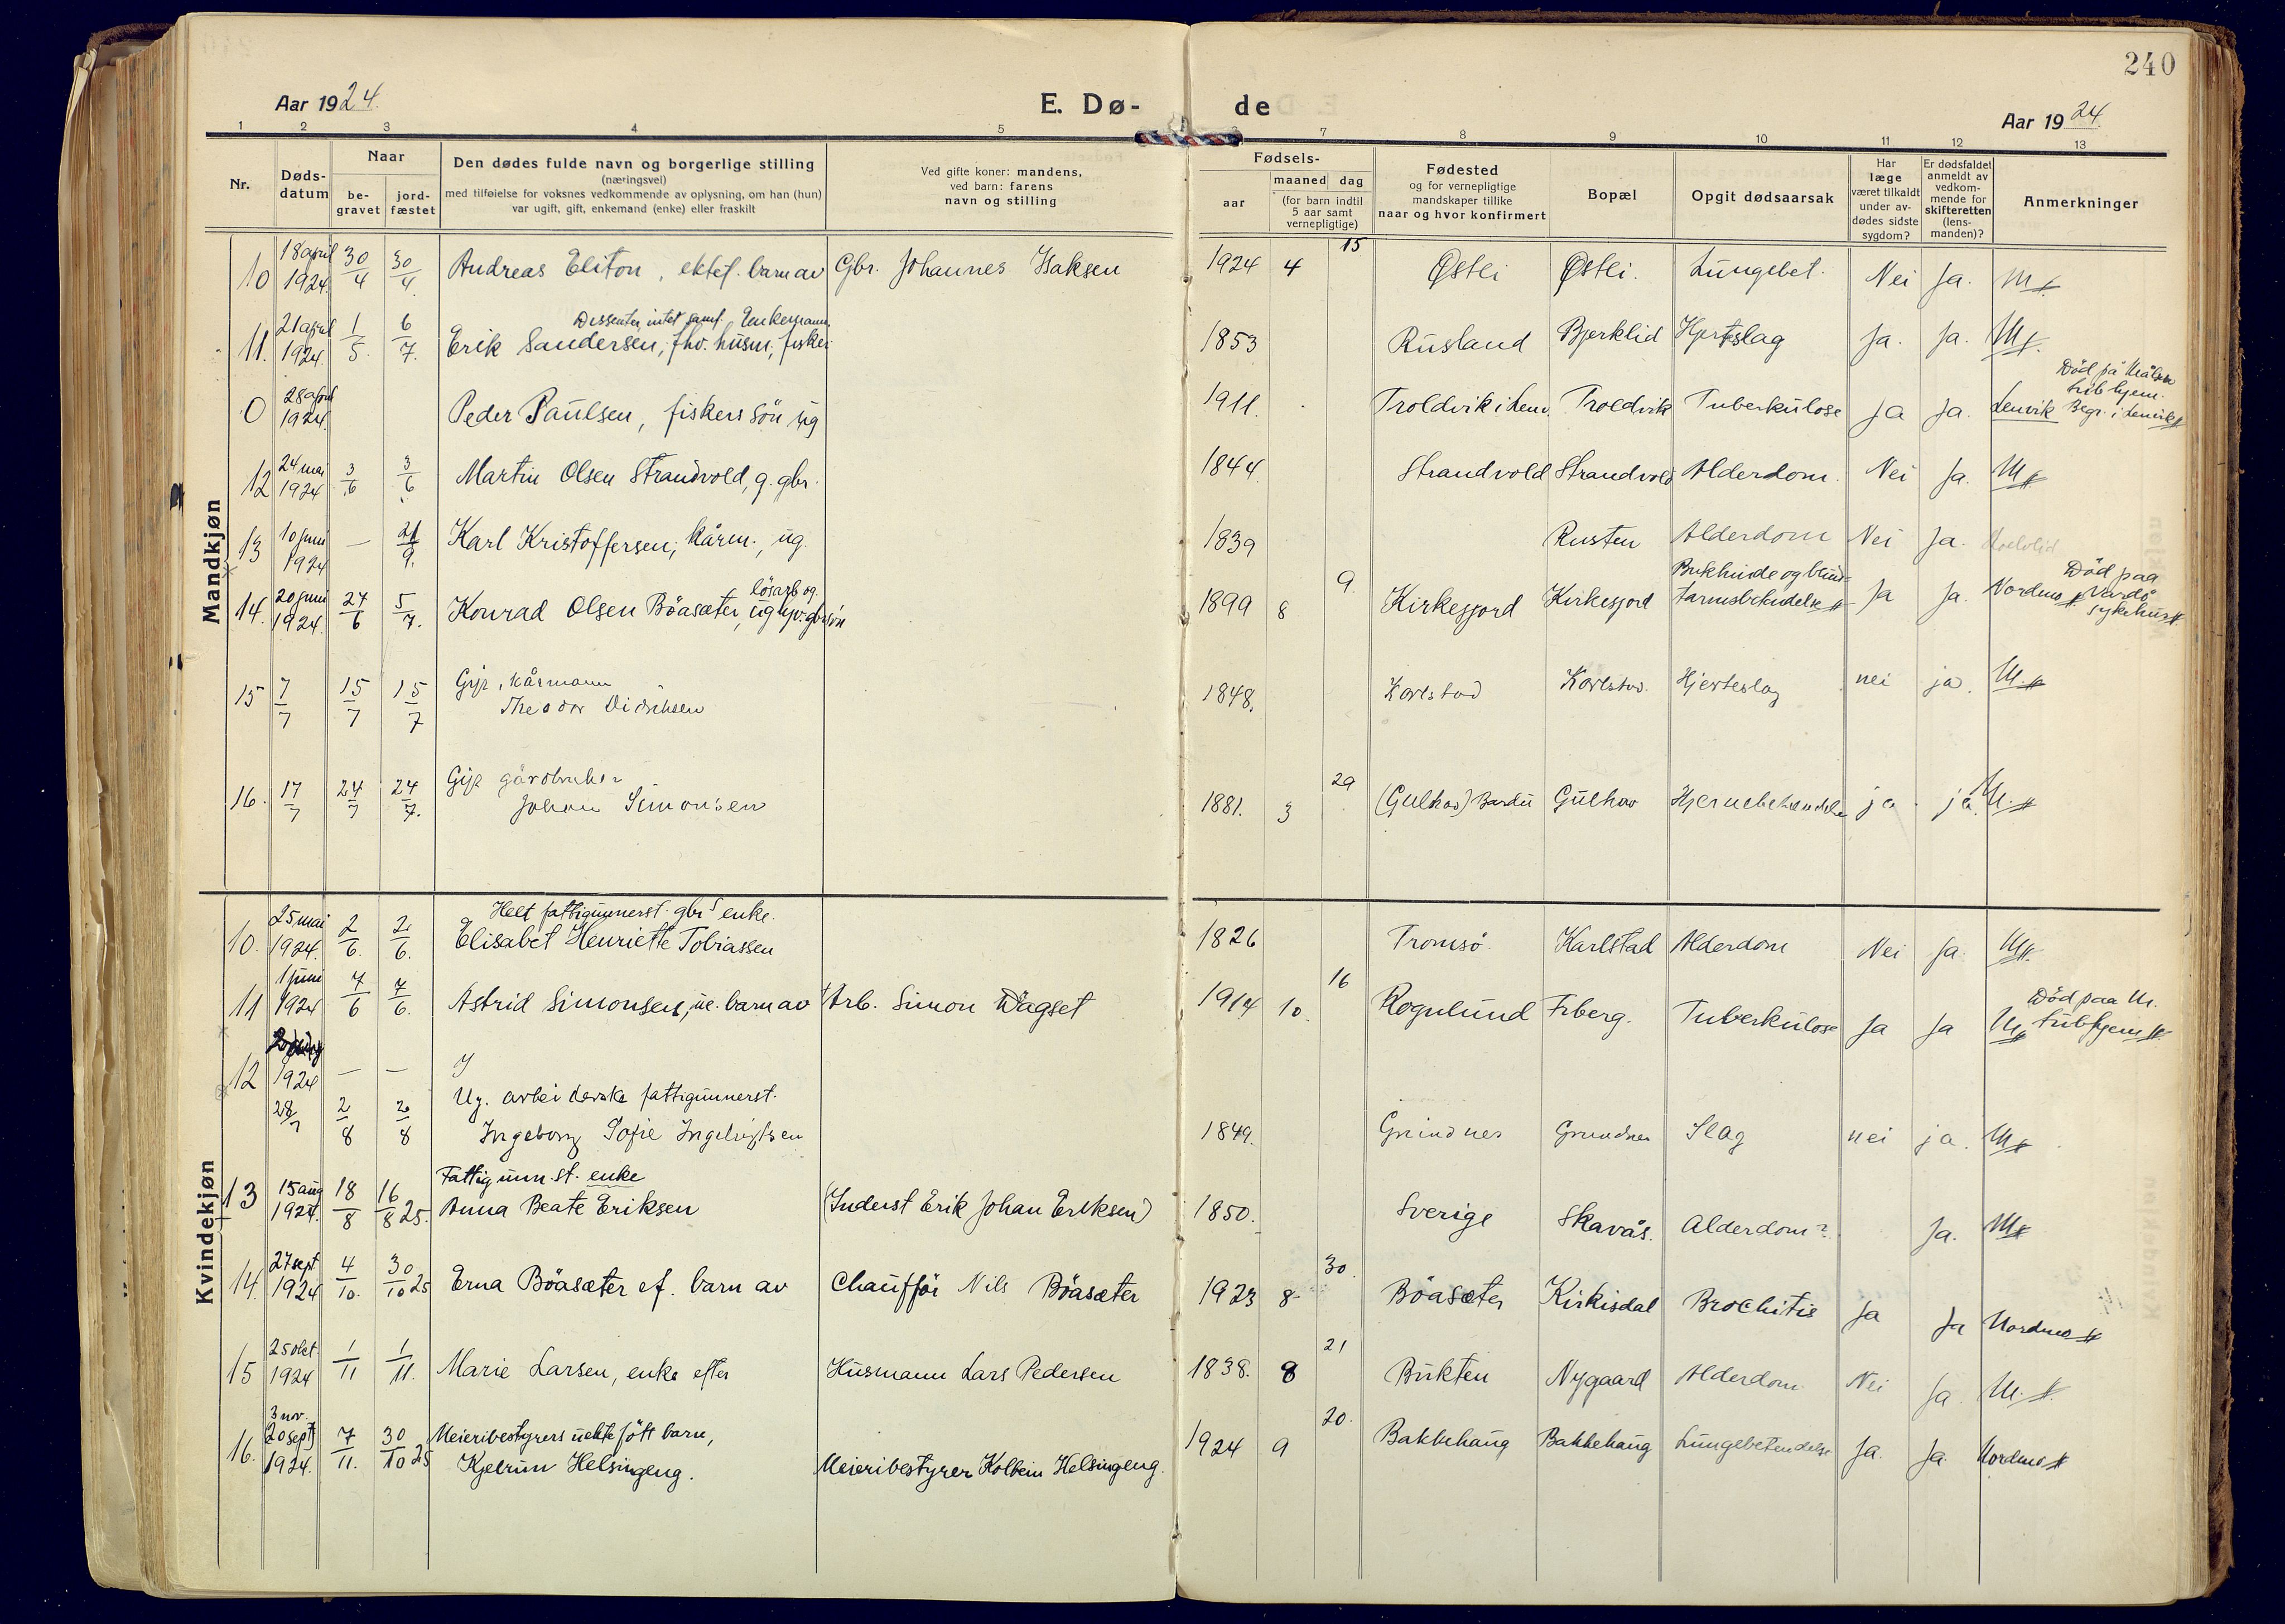 240
Aar 1924.
E. Dø- de
Aar 1924
1 2 3 4 5 7 8 9 10 11 12 13
Nr.
Døds-
datum
Naar
be-
gravet
jord-
fæstet
Den dødes fulde navn og borgerlige stilling
(næringsvei)
med tilføielse for voksnes vedkommende av oplysning, om han (hun)
var ugift, gift, enkemand (enke) eller fraskilt
Ved gifte koner: mandens,
ved barn: farens
navn og stilling
Fødsels-
aar
maaned dag
(for barn indtil
5 aar samt
vernepligtige)
Fødested
og for vernepligtige
mandskaper tillike
naar og hvor konfirmert
Bopæl
Opgit dødsaarsak
Har
læge
været tilkaldt
under av-
dødes sidste
sygdom?
Er dødsfaldet
anmeldt av
vedkom-
mende for
skifteretten
(lens-
manden)?
Anmerkninger
Mandkjøn
10 18 april 1924. 30/4 30/4. Andreas Eliton, ektef. barn av Gbr. Johannes Isaksen 1924 4 15 Østli Østli. Lungebet. Nei Ja. M
Dissenter, intet samf. Enkemann.
11. 21 april 1924. 1/5. 6/7. Erik Sandersen, fhv. husm., fisker 1853 Rusland Bjerklid Hjerteslag Ja. Ja. M
0 28 april 1924. Peder Paulsen, fiskers søn ug 1911. Troldvik i Lenv. Troldvik Tuberkulose Ja Ja. Lenvik
Død på Målselv
tub. hjem.
Begr. i Lenvik
12 24 mai 1924 3/6 3/6 Martin Olsen Strandvold, g. gbr. 1844. Strandvold Strandvold Alderdom. Nei Ja. M
13 10 juni 1924 — 21/9. Karl Kristoffersen, kårm., ug. 1839 Rusten Alderdom Nei Ja.
14. 20 juni 1924. 24/6 5/7. Konrad Olsen Böasæter, ug
lösarb og
1899 8 9. Kirkesjord Kirkesjord
Bukhinde og blind-
tarmsbetendelse Ja Ja. Nordmo
Död paa
Vardö
sykehus
15 7/7 15/7 15/7 Gift, kårmann
Theodor Didriksen 1848. Karlstad Karlstad. Hjerteslag nei ja. M.
16. 17/7 24/7 24/7. Gift gårdbruker
Johan Simonsen 1881. 3 29 (Gulhav) Bardu Gulhav Hjernebetændelse ja ja. M.
Kvindekjøn
Helt fattigunnerst. gbrs enke.
10. 25 mai 1924. 2/6. 2/6. Elisabet Henriette Tobiassen 1826 Tromsö. Karlstad Alderdom Nei Ja. M
11 1 juni 1924 7/6 7/6. Astrid Simonsen, ue. barn av Arb. Simon Dagset 1914 10. 16 Rognlund Frberg. Tuberkulose Ja Ja M
Död paa M.
tubhjem
12 1924 — —
28/7 2/8 2/8 Ug. arbeiderske fattigunnerst.
Ingeborg Sofie Ingebrigtsen 1849. Grundnes Grundnes Slag nei ja. M
Fattigunn. st. enke
13 15 aug 1924. 18/8 16/8 25. Anna Beate Eriksen (Inderst Erik Johan Eriksen) 1850. Sverige Skavås. Alderdom? Ja. M
14. 27 sept 1924 4/10. 30/10 25 Erna Böasæter ef. barn av Chaufför Nils Böasæter 1923 8 30. Böasæter Kirkisdal Brochitis Ja Ja Nordmo
15 25 okt. 1924 1/11 1/11. Marie Larsen, enke efter Husmann Lars Pedersen 1838. 8 21 Bukten Nygaard Alderdom Nei Ja. M.
16. 3 nov. (20 sept) 1924. 7/11. 30/10 25 Meieribestyrers uekte fött barn,
Kjelrun Helsingeng. Meieribestyrer Kolbein Helsingeng. 1924 9 20. Bakkehaug Bakkehaug Lungebetendelse Ja. Ja. Nordmo